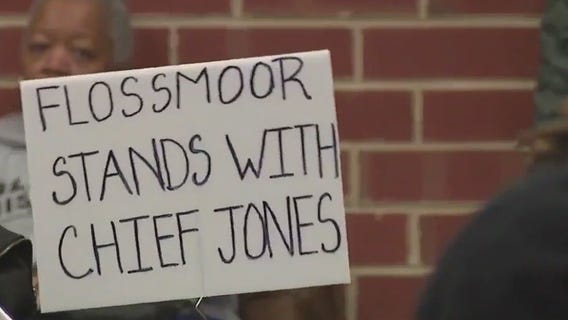 FLOSSMOOR
STANDS WITH
CHIEF JONES